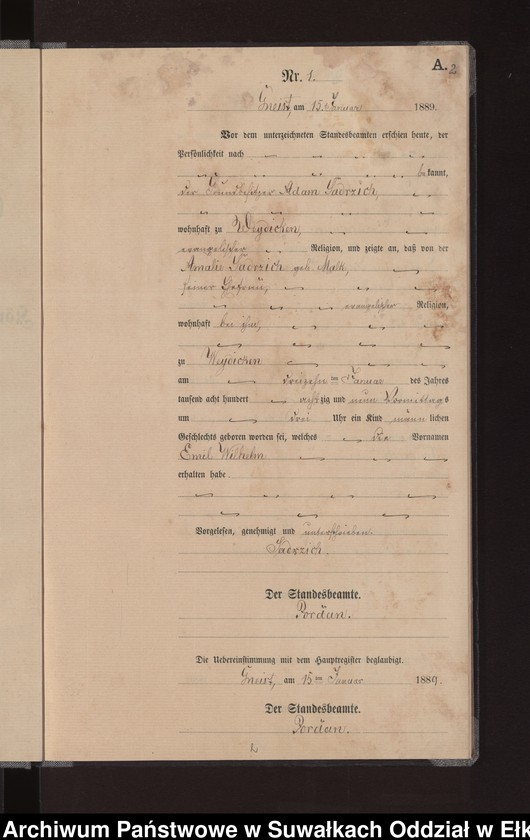 A. 2
Nr. 1.
Gneist, am 15. Januar 1889.
Vor dem unterzeichneten Standesbeamten erschien heute, der
Persönlichkeit nach
bekannt,
der Grundbesitzer Adam Sadrzich,
wohnhaft zu Weydicken,
evangelischer Religion, und zeigte an, daß von der
Amalie Sadrzich geb. Malk,
seiner Ehefrau,
evangelischer Religion,
wohnhaft bei ihm,
zu Weydicken
am dreizehnten Januar des Jahres
tausend acht hundert achtzig und neun Vormittags
um drei Uhr ein Kind männlichen
Geschlechts geboren worden sei, welches die Vornamen
Emil Wilhelm
erhalten habe.
Vorgelesen, genehmigt und unterschrieben.
Sadrzich.
Der Standesbeamte.
Pordän.
Die Uebereinstimmung mit dem Hauptregister beglaubigt.
Gneist, am 15ten Januar 1889.
Der Standesbeamte.
Pordän.
Archiwum Państwowe w Suwałkach Oddział w Ełk